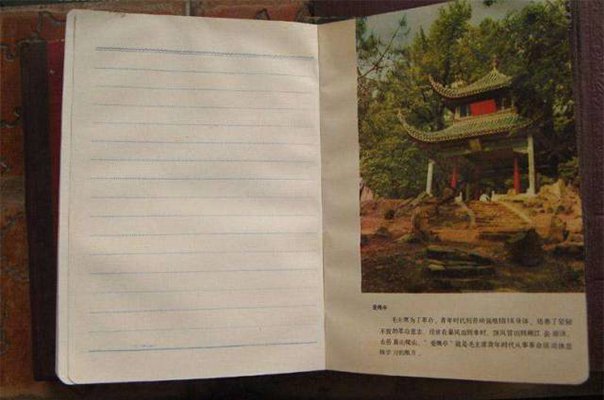 爱晚亭
毛主席为了革命，青年时代刻苦地锻炼身体，培养了坚韧
不拔的革命意志，经常在暴风雨到来时，顶风冒雨到湘江
去岳麓山爬山。“爱晚亭”就是毛主席青年时代从事革命活动休息
和学习的地方。